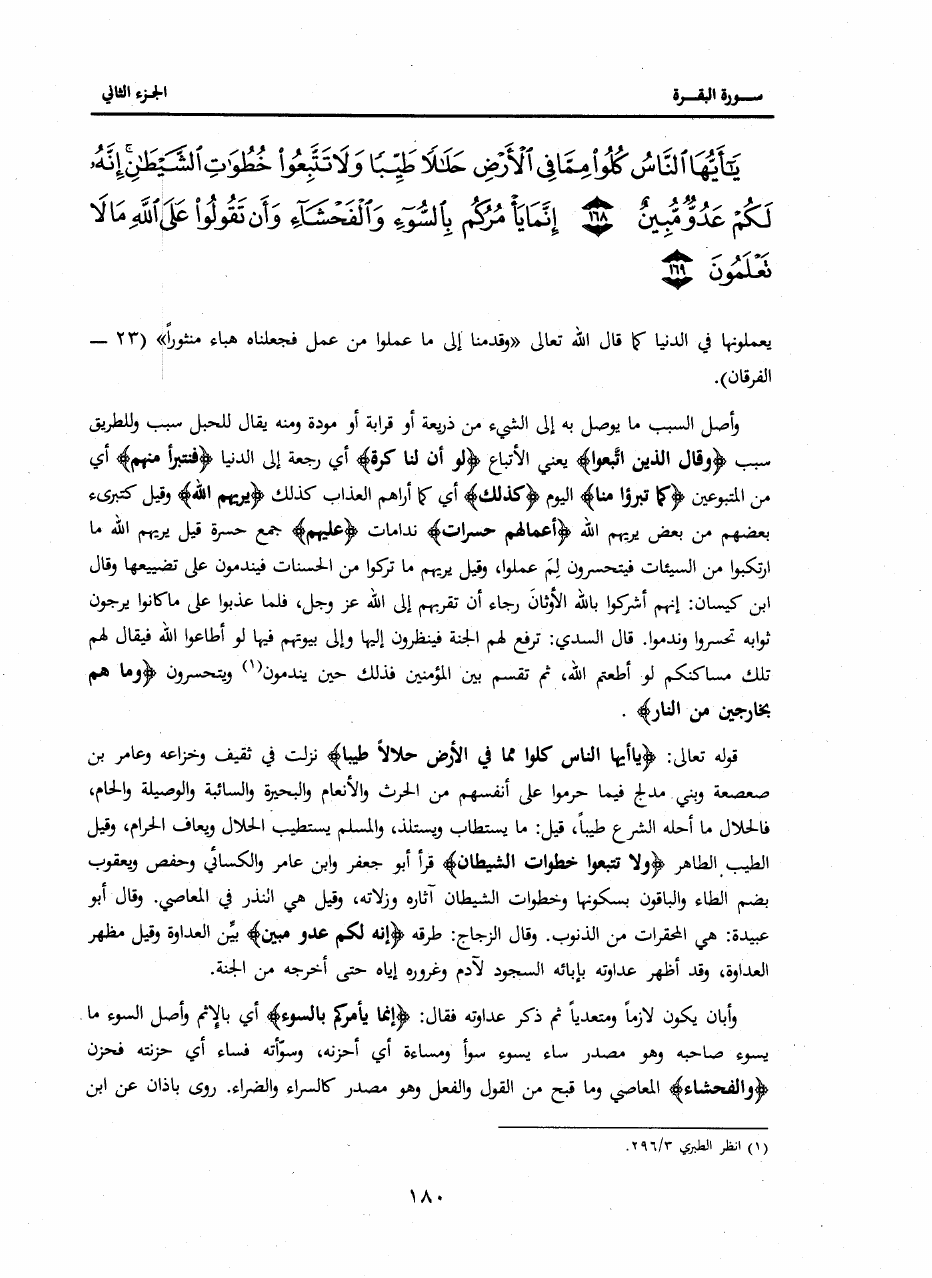 سـورة البقـرة
الجزء الثاني
يَٰٓأَيُّهَا ٱلنَّاسُ كُلُوا۟ مِمَّا فِى ٱلْأَرْضِ حَلَٰلًا طَيِّبًا وَلَا تَتَّبِعُوا۟ خُطُوَٰتِ ٱلشَّيْطَٰنِ ۚ إِنَّهُۥ
لَكُمْ عَدُوٌّ مُّبِينٌ ١٦٨ إِنَّمَا يَأْمُرُكُم بِٱلسُّوٓءِ وَٱلْفَحْشَآءِ وَأَن تَقُولُوا۟ عَلَى ٱللَّهِ مَا لَا
تَعْلَمُونَ ١٦٩
يعملونها في الدنيا كما قال الله تعالى «وقدمنا إلى ما عملوا من عمل فجعلناه هباء منثوراً» (٢٣ —
الفرقان).
وأصل السبب ما يوصل به إلى الشيء من ذريعة أو قرابة أو مودة ومنه يقال للحبل سبب وللطريق
سبب ﴿وقال الذين اتَّبعوا﴾ يعني الأتباع ﴿لو أن لنا كرة﴾ أي رجعة إلى الدنيا ﴿فنتبرأ منهم﴾ أي
من المتبوعين ﴿كما تبرؤا منا﴾ اليوم ﴿كذلك﴾ أي كما أراهم العذاب كذلك ﴿يريهم الله﴾ وقيل كتبرىء
بعضهم من بعض يريهم الله ﴿أعمالهم حسرات﴾ ندامات ﴿عليهم﴾ جمع حسرة قيل يريهم الله ما
ارتكبوا من السيئات فيتحسرون لِمَ عملوا، وقيل يريهم ما تركوا من الحسنات فيندمون على تضييعها وقال
ابن كيسان: إنهم أشركوا بالله الأوثانَ رجاء أن تقربهم إلى الله عز وجل، فلما عذبوا على ماكانوا يرجون
ثوابه تحسروا وندموا. قال السدي: ترفع لهم الجنة فينظرون إليها وإلى بيوتهم فيها لو أطاعوا الله فيقال لهم
تلك مساكنكم لو أطعتم الله، ثم تقسم بين المؤمنين فذلك حين يندمون(١) ويتحسرون ﴿وما هم
بخارجين من النار﴾ .
قوله تعالى: ﴿ياأيها الناس كلوا مما في الأرض حلالاً طيبا﴾ نزلت في ثقيف وخزاعه وعامر بن
صعصعة وبني مدلج فيما حرموا على أنفسهم من الحرث والأنعام والبحيرة والسائبة والوصيلة والحام،
فالحلال ما أحله الشرع طيباً، قيل: ما يستطاب ويستلذ، والمسلم يستطيب الحلال ويعاف الحرام، وقيل
الطيب الطاهر ﴿ولا تتبعوا خطوات الشيطان﴾ قرأ أبو جعفر وابن عامر والكسائي وحفص ويعقوب
بضم الطاء والباقون بسكونها وخطوات الشيطان آثاره وزلاته، وقيل هي النذر في المعاصي. وقال أبو
عبيدة: هي المحقرات من الذنوب. وقال الزجاج: طرقه ﴿إنه لكم عدو مبين﴾ بيِّن العداوة وقيل مظهر
العداوة، وقد أظهر عداوته بإبائه السجود لآدم وغروره إياه حتى أخرجه من الجنة.
وأبان يكون لازماً ومتعدياً ثم ذكر عداوته فقال: ﴿إنما يأمركم بالسوء﴾ أي بالإثم وأصل السوء ما
يسوء صاحبه وهو مصدر ساء يسوء سوأ ومساءة أي أحزنه، وسوّأته فساء أي حزنته فحزن
﴿والفحشاء﴾ المعاصي وما قبح من القول والفعل وهو مصدر كالسراء والضراء. روى باذان عن ابن
(١) انظر الطبري ٢٩٦/٣.
١٨٠